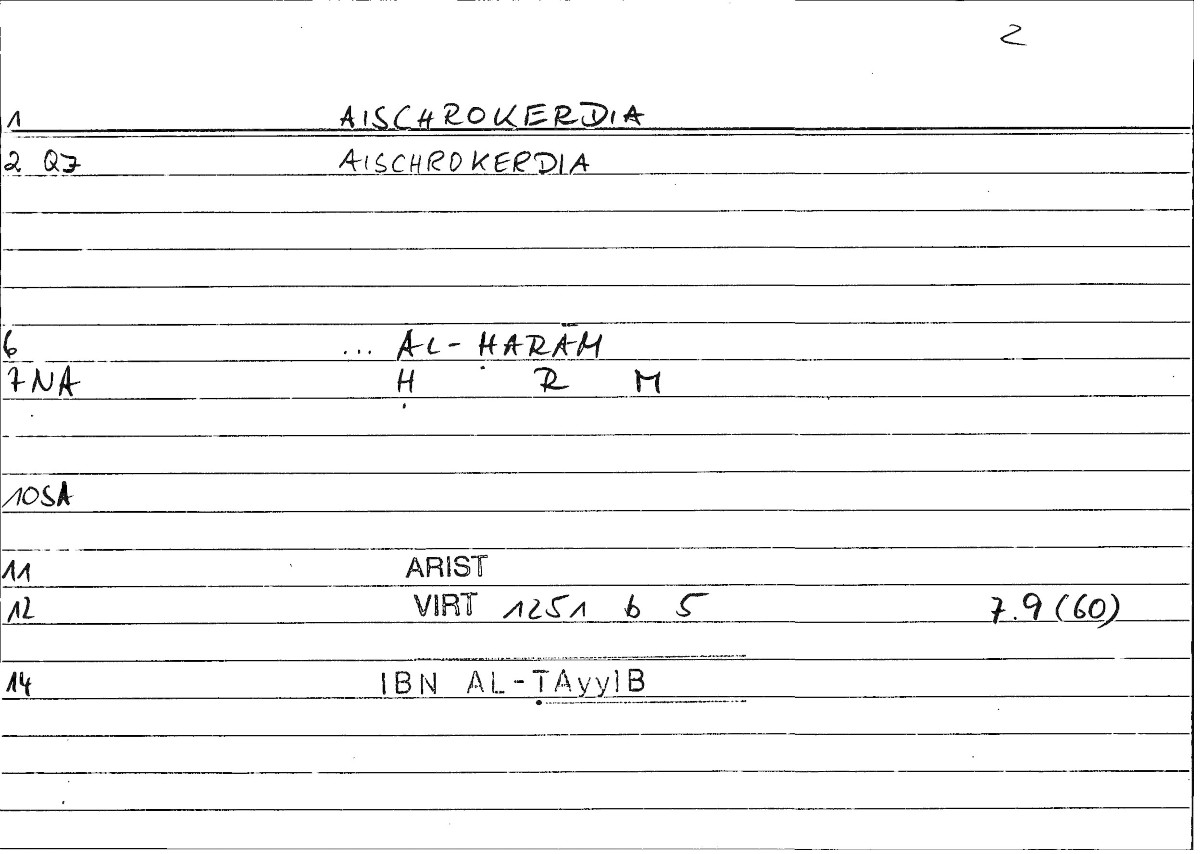 2
1 AISCHROKERDIA
2 QZ AISCHROKERDIA
6 ... AL-ḤARĀM
7 NA Ḥ R M
10 SA
11 ARIST
12 VIRT 1251 b 5 7.9 (60)
14 IBN AL-ṬAyyIB